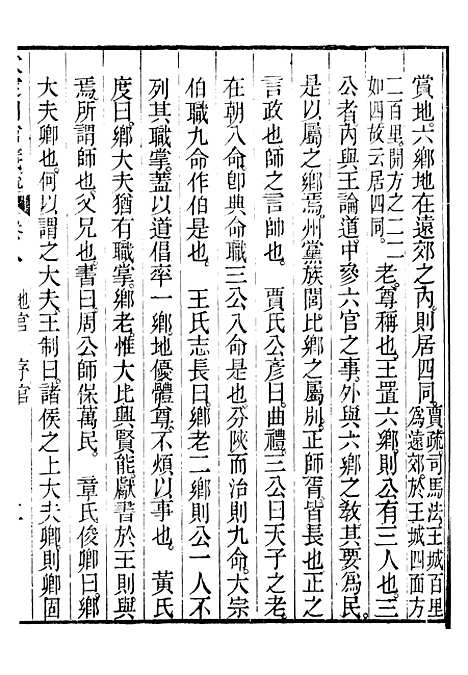 賞地六鄉地在遠郊之內則居四同賈疏司馬法王城百里
為遠郊於王城四面方
二百里開方之二二
如四故云居四同老尊稱也王置六鄉則公有三人也三
公者內與王論道中參六官之事外與六鄉之教其要為民
是以屬之鄉焉州黨族閭比鄉之屬別正師胥皆長也正之
言政也師之言帥也　賈氏公彥曰曲禮三公曰天子之老
在朝八命卽典命職三公八命是也分陜而治則九命大宗
伯職九命作伯是也　王氏志長曰鄉老二鄉則公一人不
列其職掌蓋以道倡率一鄉地優體尊不煩以事也　黃氏
度曰鄉大夫猶有職掌鄉老惟大比興賢能獻書於王則與
焉所謂師也父兄也書曰周公師保萬民　章氏俊卿曰鄉
大夫卿也何以謂之大夫王制曰諸侯之上大夫卿則卿固
地官　序官